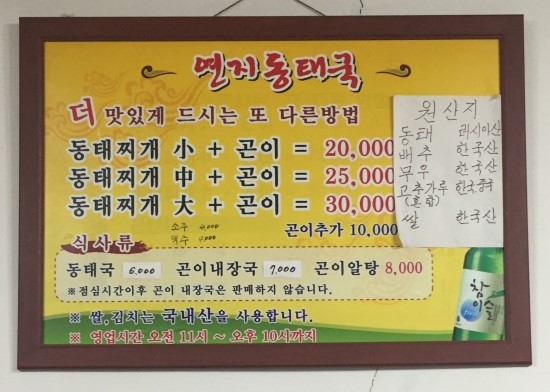 연지동태국
더 맛있게 드시는 또 다른방법
동태찌개 小 + 곤이 = 20,000
동태찌개 中 + 곤이 = 25,000
동태찌개 大 + 곤이 = 30,000
소주 4,000
맥주 4,000
곤이추가 10,000
식사류
동태국 6,000 곤이내장국 7,000 곤이알탕 8,000
※점심시간이후 곤이 내장국은 판매하지 않습니다.
※ 쌀,김치는 국내산을 사용합니다.
※ 영업시간 오전 11시 ~ 오후 10시까지
원산지
동태 러시아산
배추 한국산
무우 한국산
고추가루 한국,중국
(혼합)
쌀 한국산
참이슬